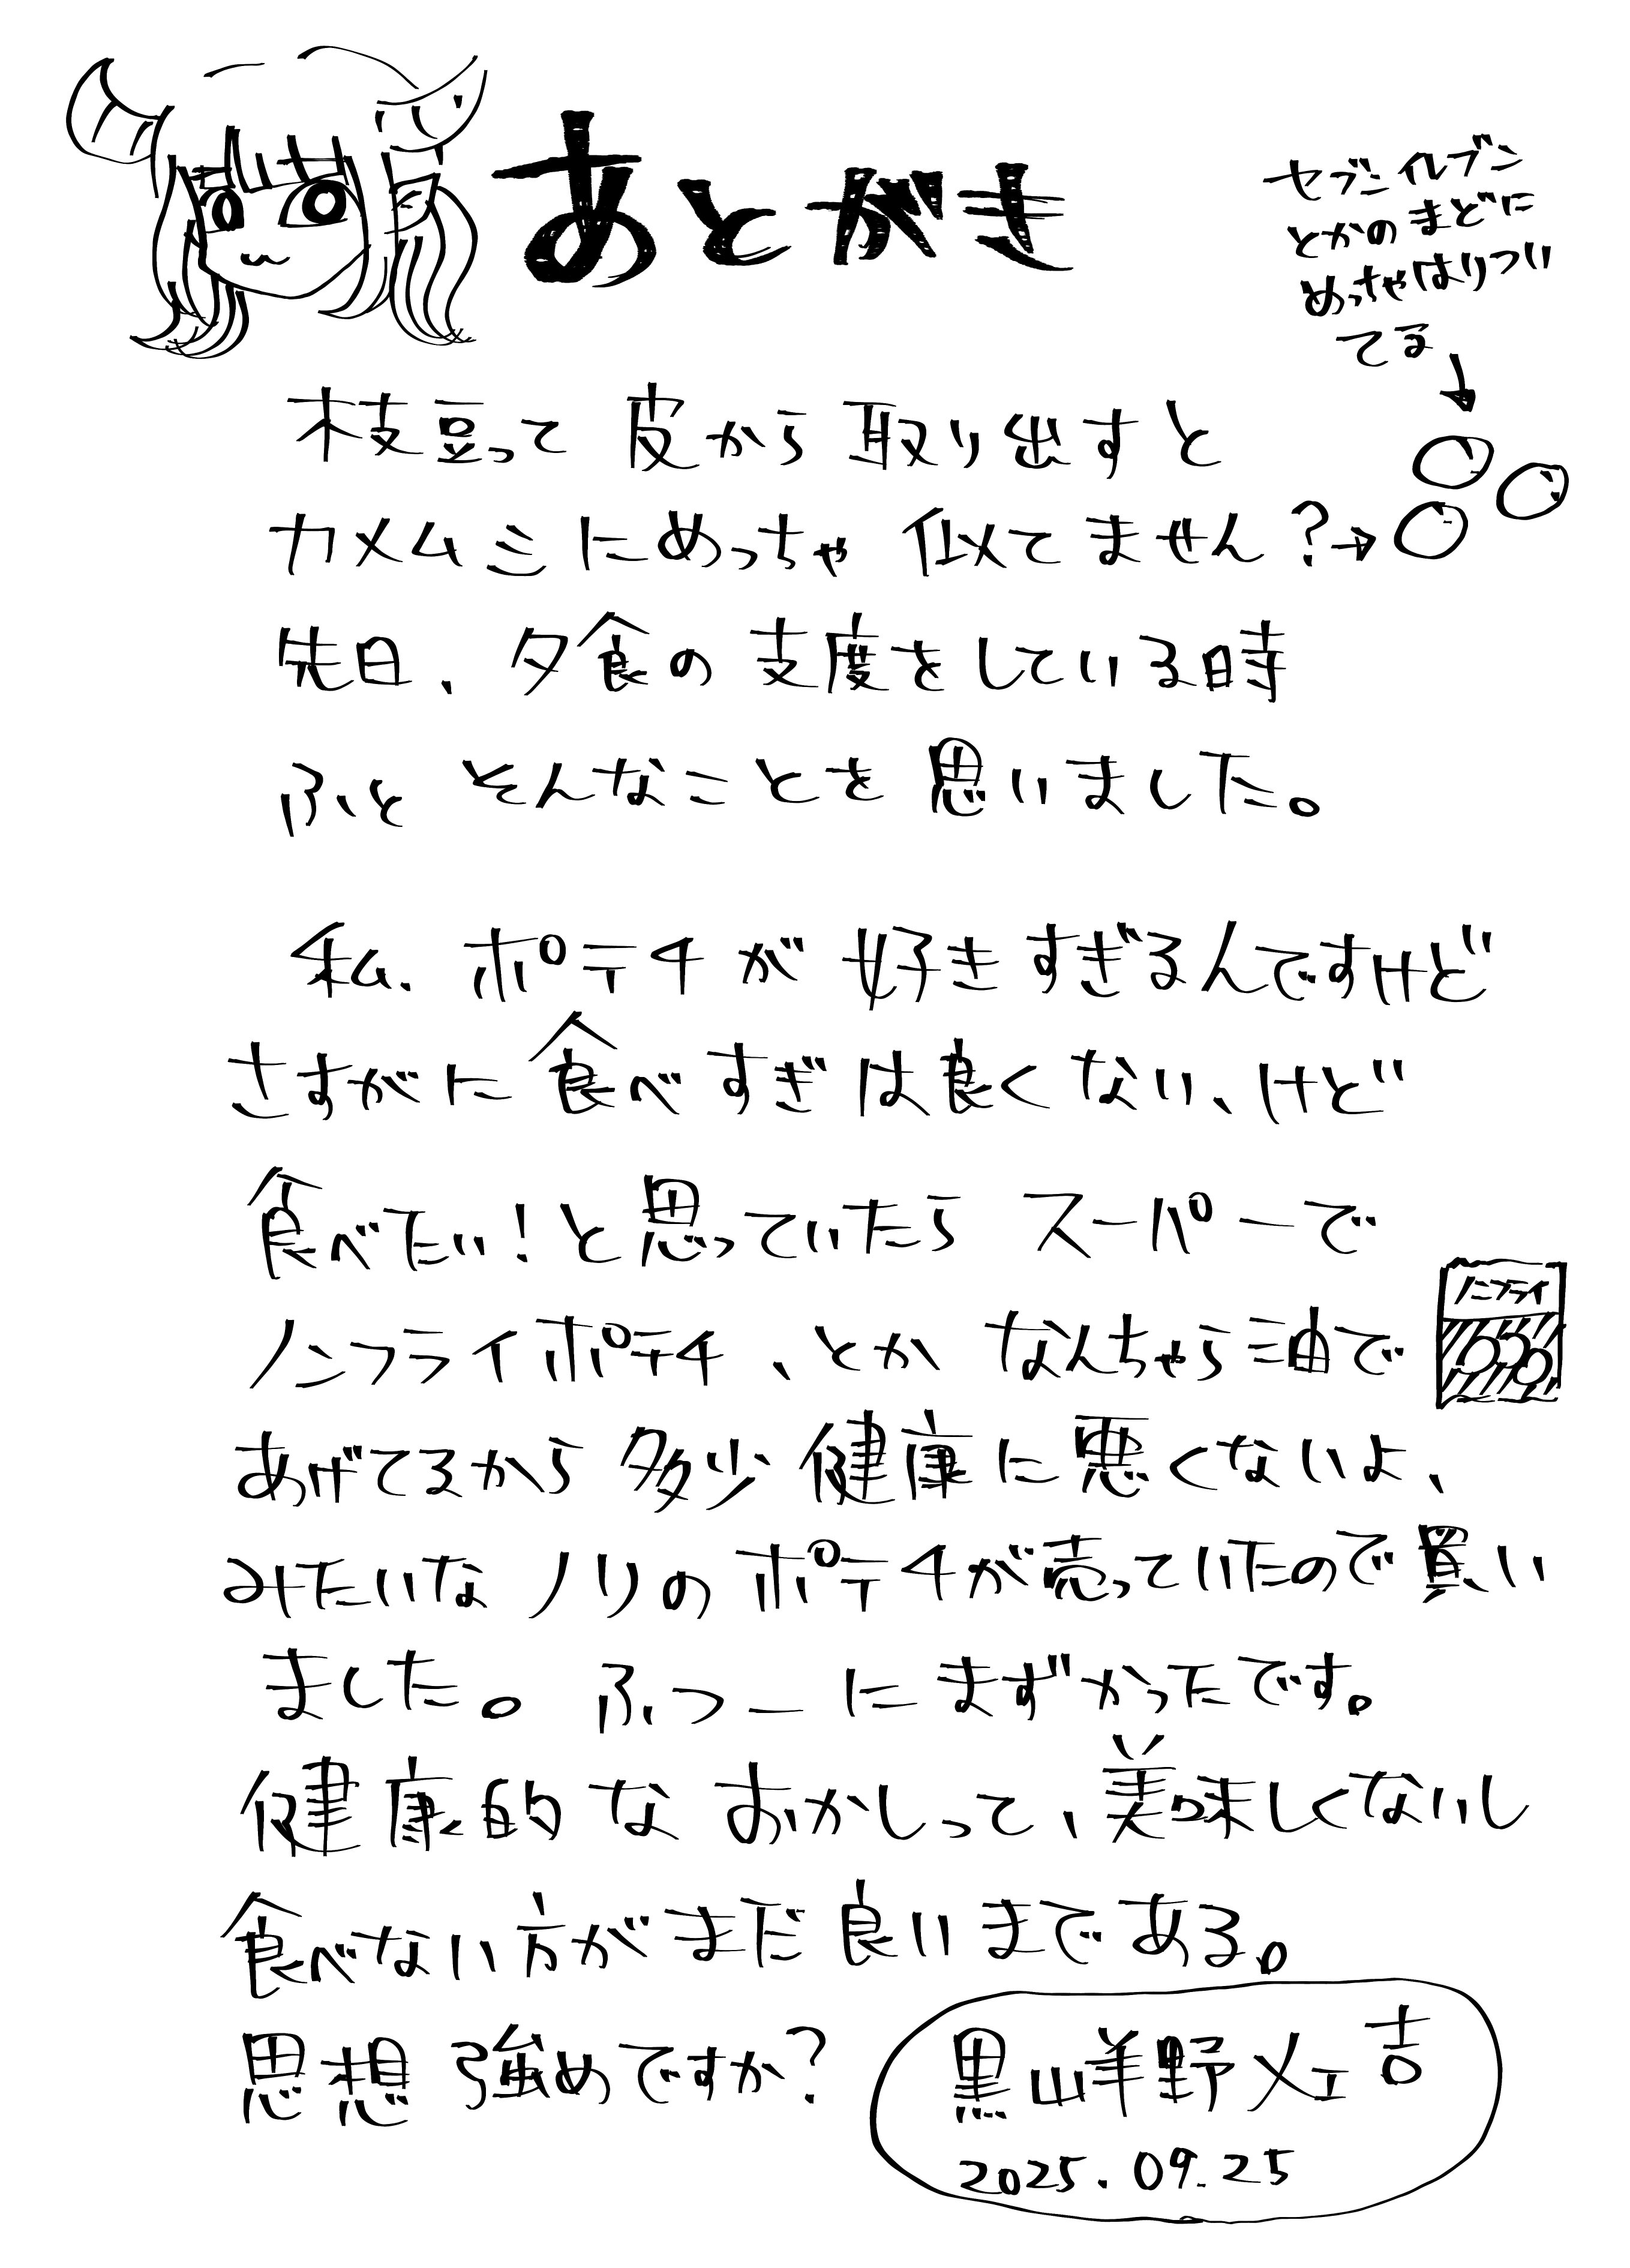 あとがき
セブンイレブン
とかのまどに
めっちゃはりつい
てる
枝豆って皮から取り出すと
カメムシにめっちゃ似てません?→
先日、夕食の支度をしている時
ふとそんなことを思いました。
私、ポテチが好きすぎるんですけど
さすがに食べすぎは良くない、けど
食べたい!と思っていたらスーパーで
ノンフライポテチ、とかなんちゃら油で
ノンフライ
あげてるから多少健康に悪くないよ、
みたいなノリのポテチが売っていたので買い
ました。ふつーにまずかったです。
健康的なおかしって、美味しくないし
食べない方がまだ良いまである。
思想強めですか?
黒山羊野メエ吉
2025.09.25